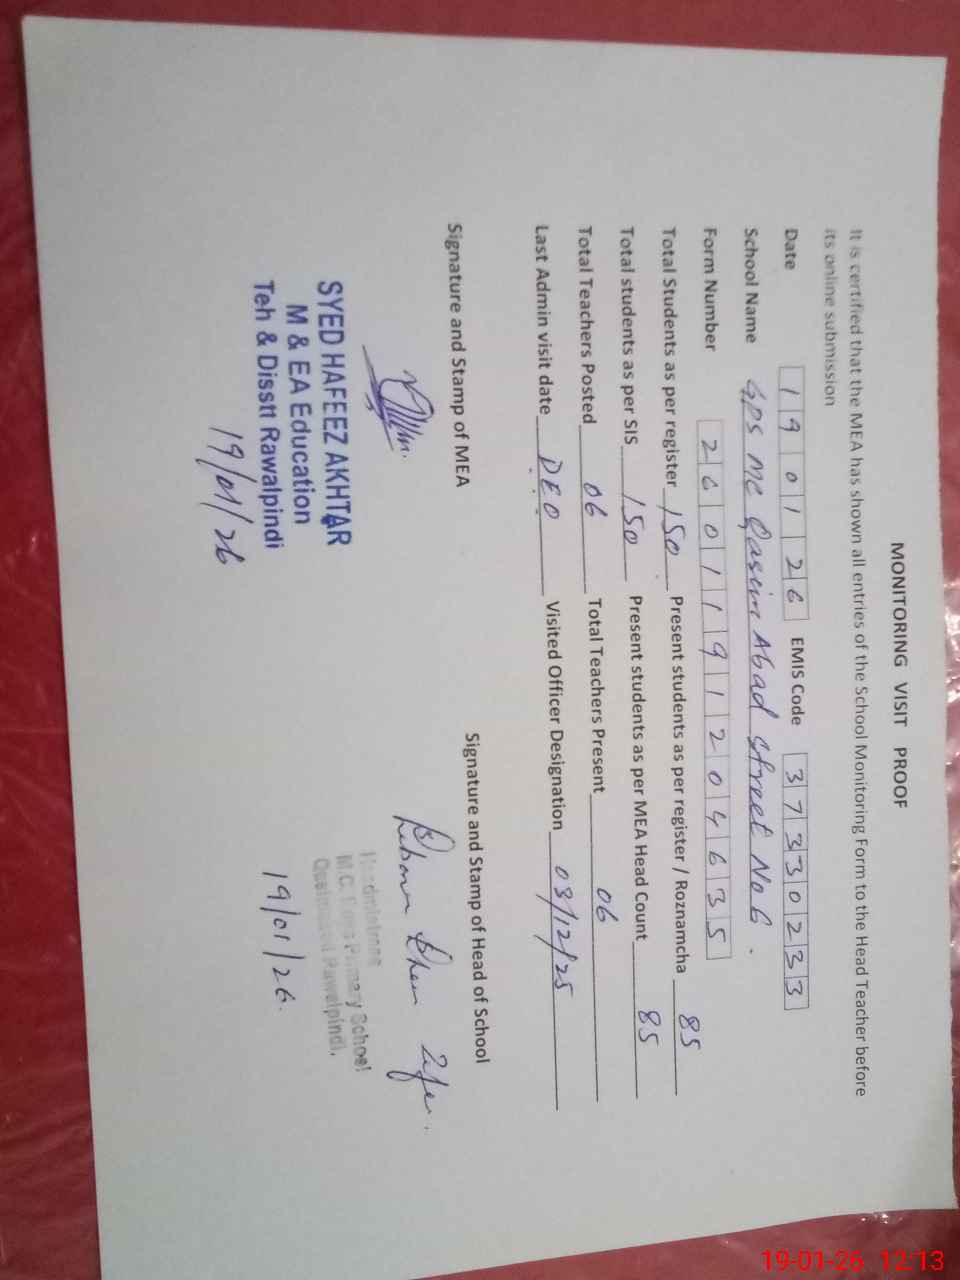 MONITORING VISIT PROOF
It is certified that the MEA has shown all entries of the School Monitoring Form to the Head Teacher before
its online submission
Date 190126 EMIS Code 37330233
School Name GPS MC Qasim Abad Street No 6.
Form Number 2601191204635
Total Students as per register 150 Present students as per register / Roznamcha 85
Total students as per SIS 150 Present students as per MEA Head Count 85
Total Teachers Posted 06 Total Teachers Present 06
Last Admin visit date DEO Visited Officer Designation 03/12/25
Signature and Stamp of MEA Signature and Stamp of Head of School
SYED HAFEEZ AKHTAR
M & EA Education
Teh & Disstt Rawalpindi
19/01/26
Headmistress
M.C. Primary School
Rawalpindi.
19/01/26.
19-01-26 12:13